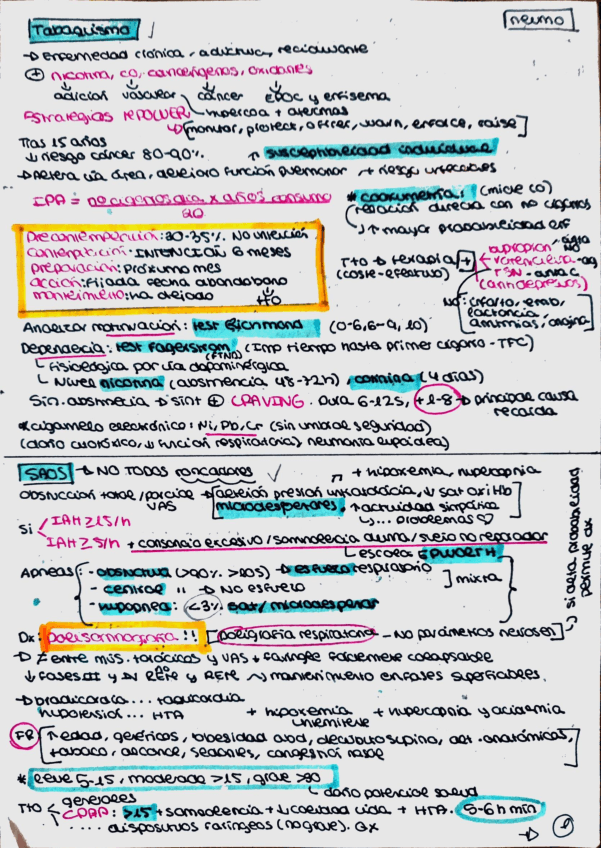 Tabaquismo
neumo
→ enfermedad crónica, adictiva, recidivante
+ nicotina, CO, cancerígenos, oxidantes
adicción vascular cáncer EPOC y enfisema
hipercoa + ateromas
Estrategias MPOWER
→ [monitor, protect, offer, warn, enforce, raise]
Tras 15 años
↓ riesgo cáncer 80-90%. ↑ susceptibilidad individual
→ Altera vía aérea, deterioro función pulmonar + riesgo infecciones
IPA = nº cigarros día x años consumo
20
* cooximetría: (mide CO)
relación directa con nº cigarros
↑ mayor probabilidad enf
Precontemplación: 30-35%. No intención
Contemplación: INTENCIÓN 6 meses
preparación: Próximo mes
acción: Fijada fecha abandono
mantenimiento: ha dejado
Tto → terapia +
(coste-efectivo)
bupropion
vareniclina
TSN
(antidepresivos)
NO: infarto, emb,
lactancia,
arritmias, angina
Analizar motivación: test Richmond (0-6, 6-9, 10)
Dependecia: test Fagerstrom (Imp tiempo hasta primer cigarro - TFC)
(FTND)
Fisiológica por vía dopaminérgica
Niveles nicotina (abstinencia 48-72h), cotinina (4 días)
Sín. abstinencia → sint + CRAVING. Dura 6-12S, + 1-8 → principal causa
recaída
* cigarrillo electrónico: Ni, Pb, Cr (sin umbral seguridad)
(daño citotóxico, ↓ función respiratoria, neumonía lipoidea)
SAOS → NO TODOS roncadores ✓
+ hipoxemia, hipercapnia
Obstrucción total/parcial
VAS
→ alteración presión intratorácica, ↓ sat oxi Hb
microdespertares. ↑ actividad simpática
↳... problemas ♡
Si
IAH ≥ 15/h
IAH ≥ 5/h + cansancio excesivo / somnolencia diurna / sueño no reparador
escala EPWORTH
Apneas: - obstructiva (>90% >10s) → esfuerzo respiratorio
- central " → NO esfuerzo
] mixta
- hipopnea: <3% sat / microdespertar
si alta probabilidad
permite dx
Dx: polisomnografía !! [poligrafía respiratoria - No parámetros neurofisio]
→ ≠ entre músc. torácicos y VAS + faringe fácilmente colapsable
→ bradicardia ... taquicardia
hipotensión ... HTA
+ hipoxemia
intermitente
+ hipercapnia y acidemia
FR
↑ edad, genéricos, obesidad abd, decúbito supino, alt. anatómicas,
+ tabaco, alcohol, sedantes, congestión nasal
* leve 5-15, moderada >15, grave >30
↳ daño potencial salud
Tto
generales
CPAP: >15 + somnolencia + ↓ calidad vida + HTA. 5-6 h mín
.... dispositivos faríngeos (no grave). Qx
→ 1